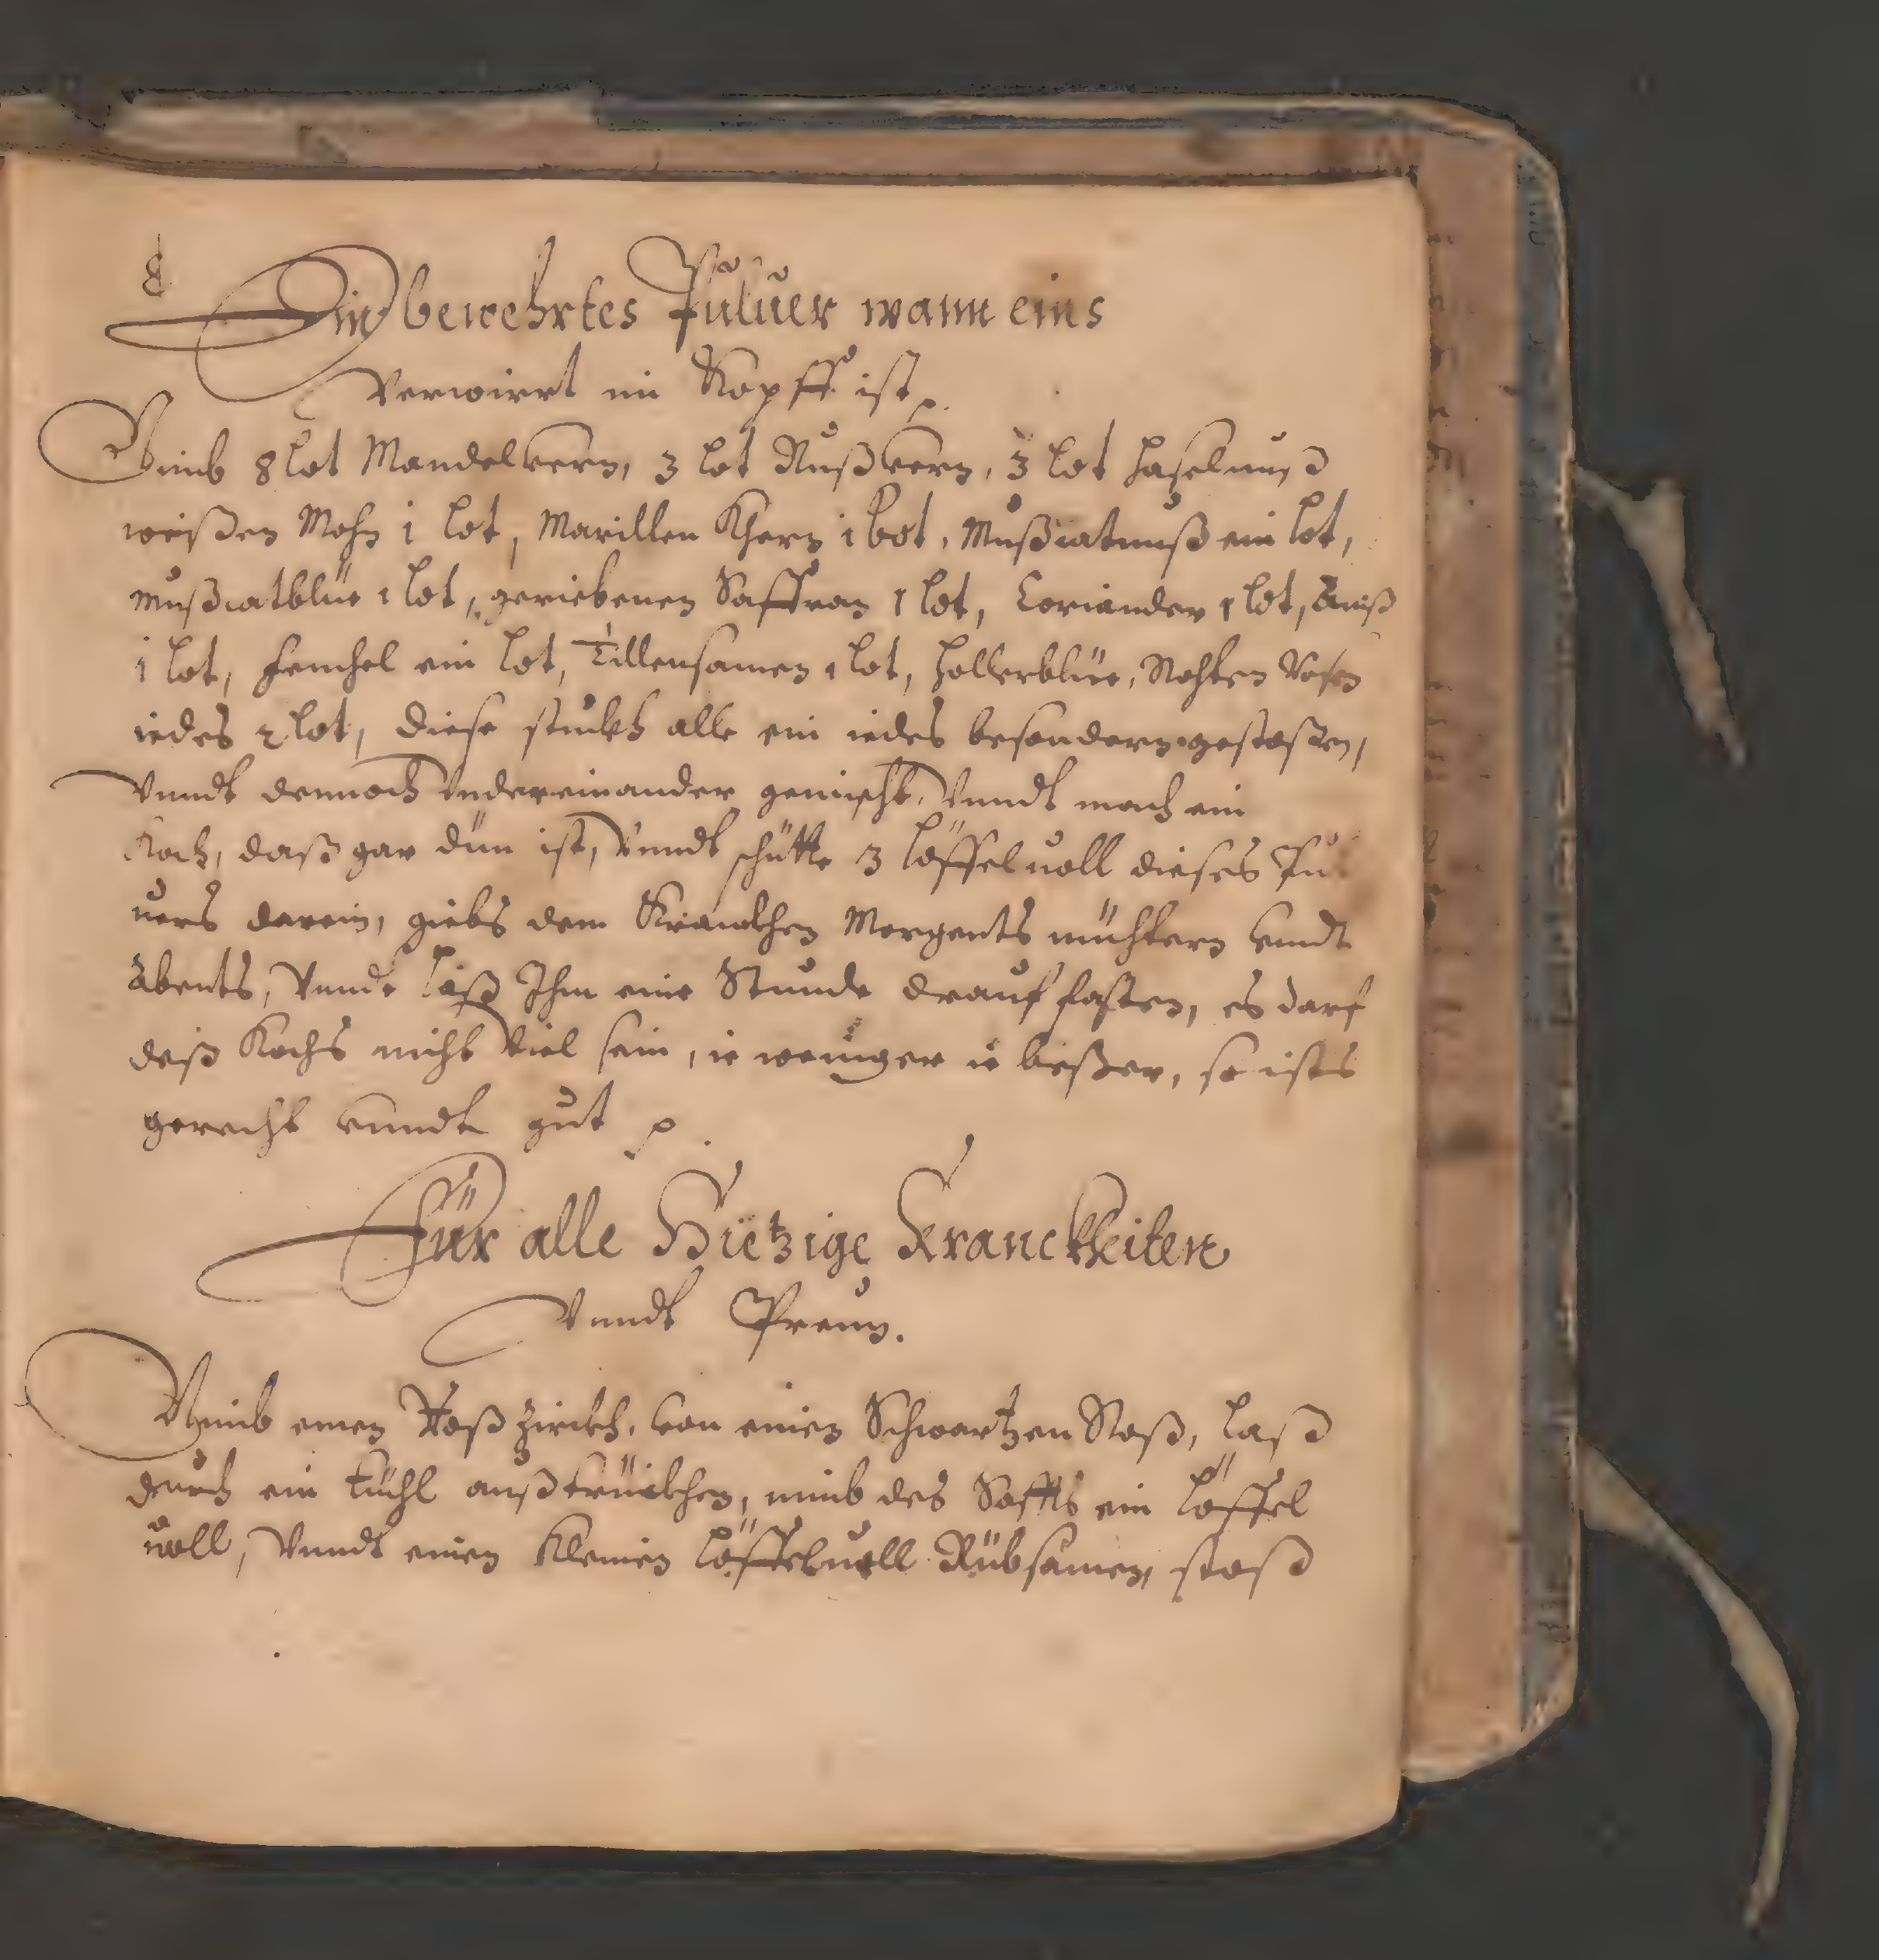 8
Ein bewehrtes Puluer wann eins
Verwirrt im Kopff ist
Nimb 8 lot Mandelkern, 3 lot Nußkern, 3 lot haselnuß
weißen Mohn 1 lot, Marillen Khern 1 lot, Mußcatnuß ein lot,
mußcatblüe 1 lot, geriebenen Saffran 1 lot, Coriander 1 lot, Äniß
1 lot, fenchel ein lot, Tillensamen 1 lot, hollerblüe, Rohten Rosen
iedes 2 lot, diese stuckh alle ein iedes besondern gestoßen,
Vnndt dennoch Vndereinander gemischt, Vnndt mach ein
Koch, daß gar dün ist, Vnndt schütte 3 löffel uoll dieses Pul
uers darein, giebs dem Kranckhen Morgents nüchtern vnndt
Abents, Vnndt laß Ihm eine Stunde drauf fasten, es darf
deß Kochs nicht Viel sein, ie weniger ie beßer, so ists
gerecht vnndt gut
Für alle Hietzige Kranckheiten
Vnndt Preun.
Nimb einen Roßzirckh, von einen Schwartzen Roß, laß
durch ein tüchl außtrückhen, nimb des Saffts ein löffel
uoll, Vnndt einen Kleinen löffel uoll Rübsamen, stoß